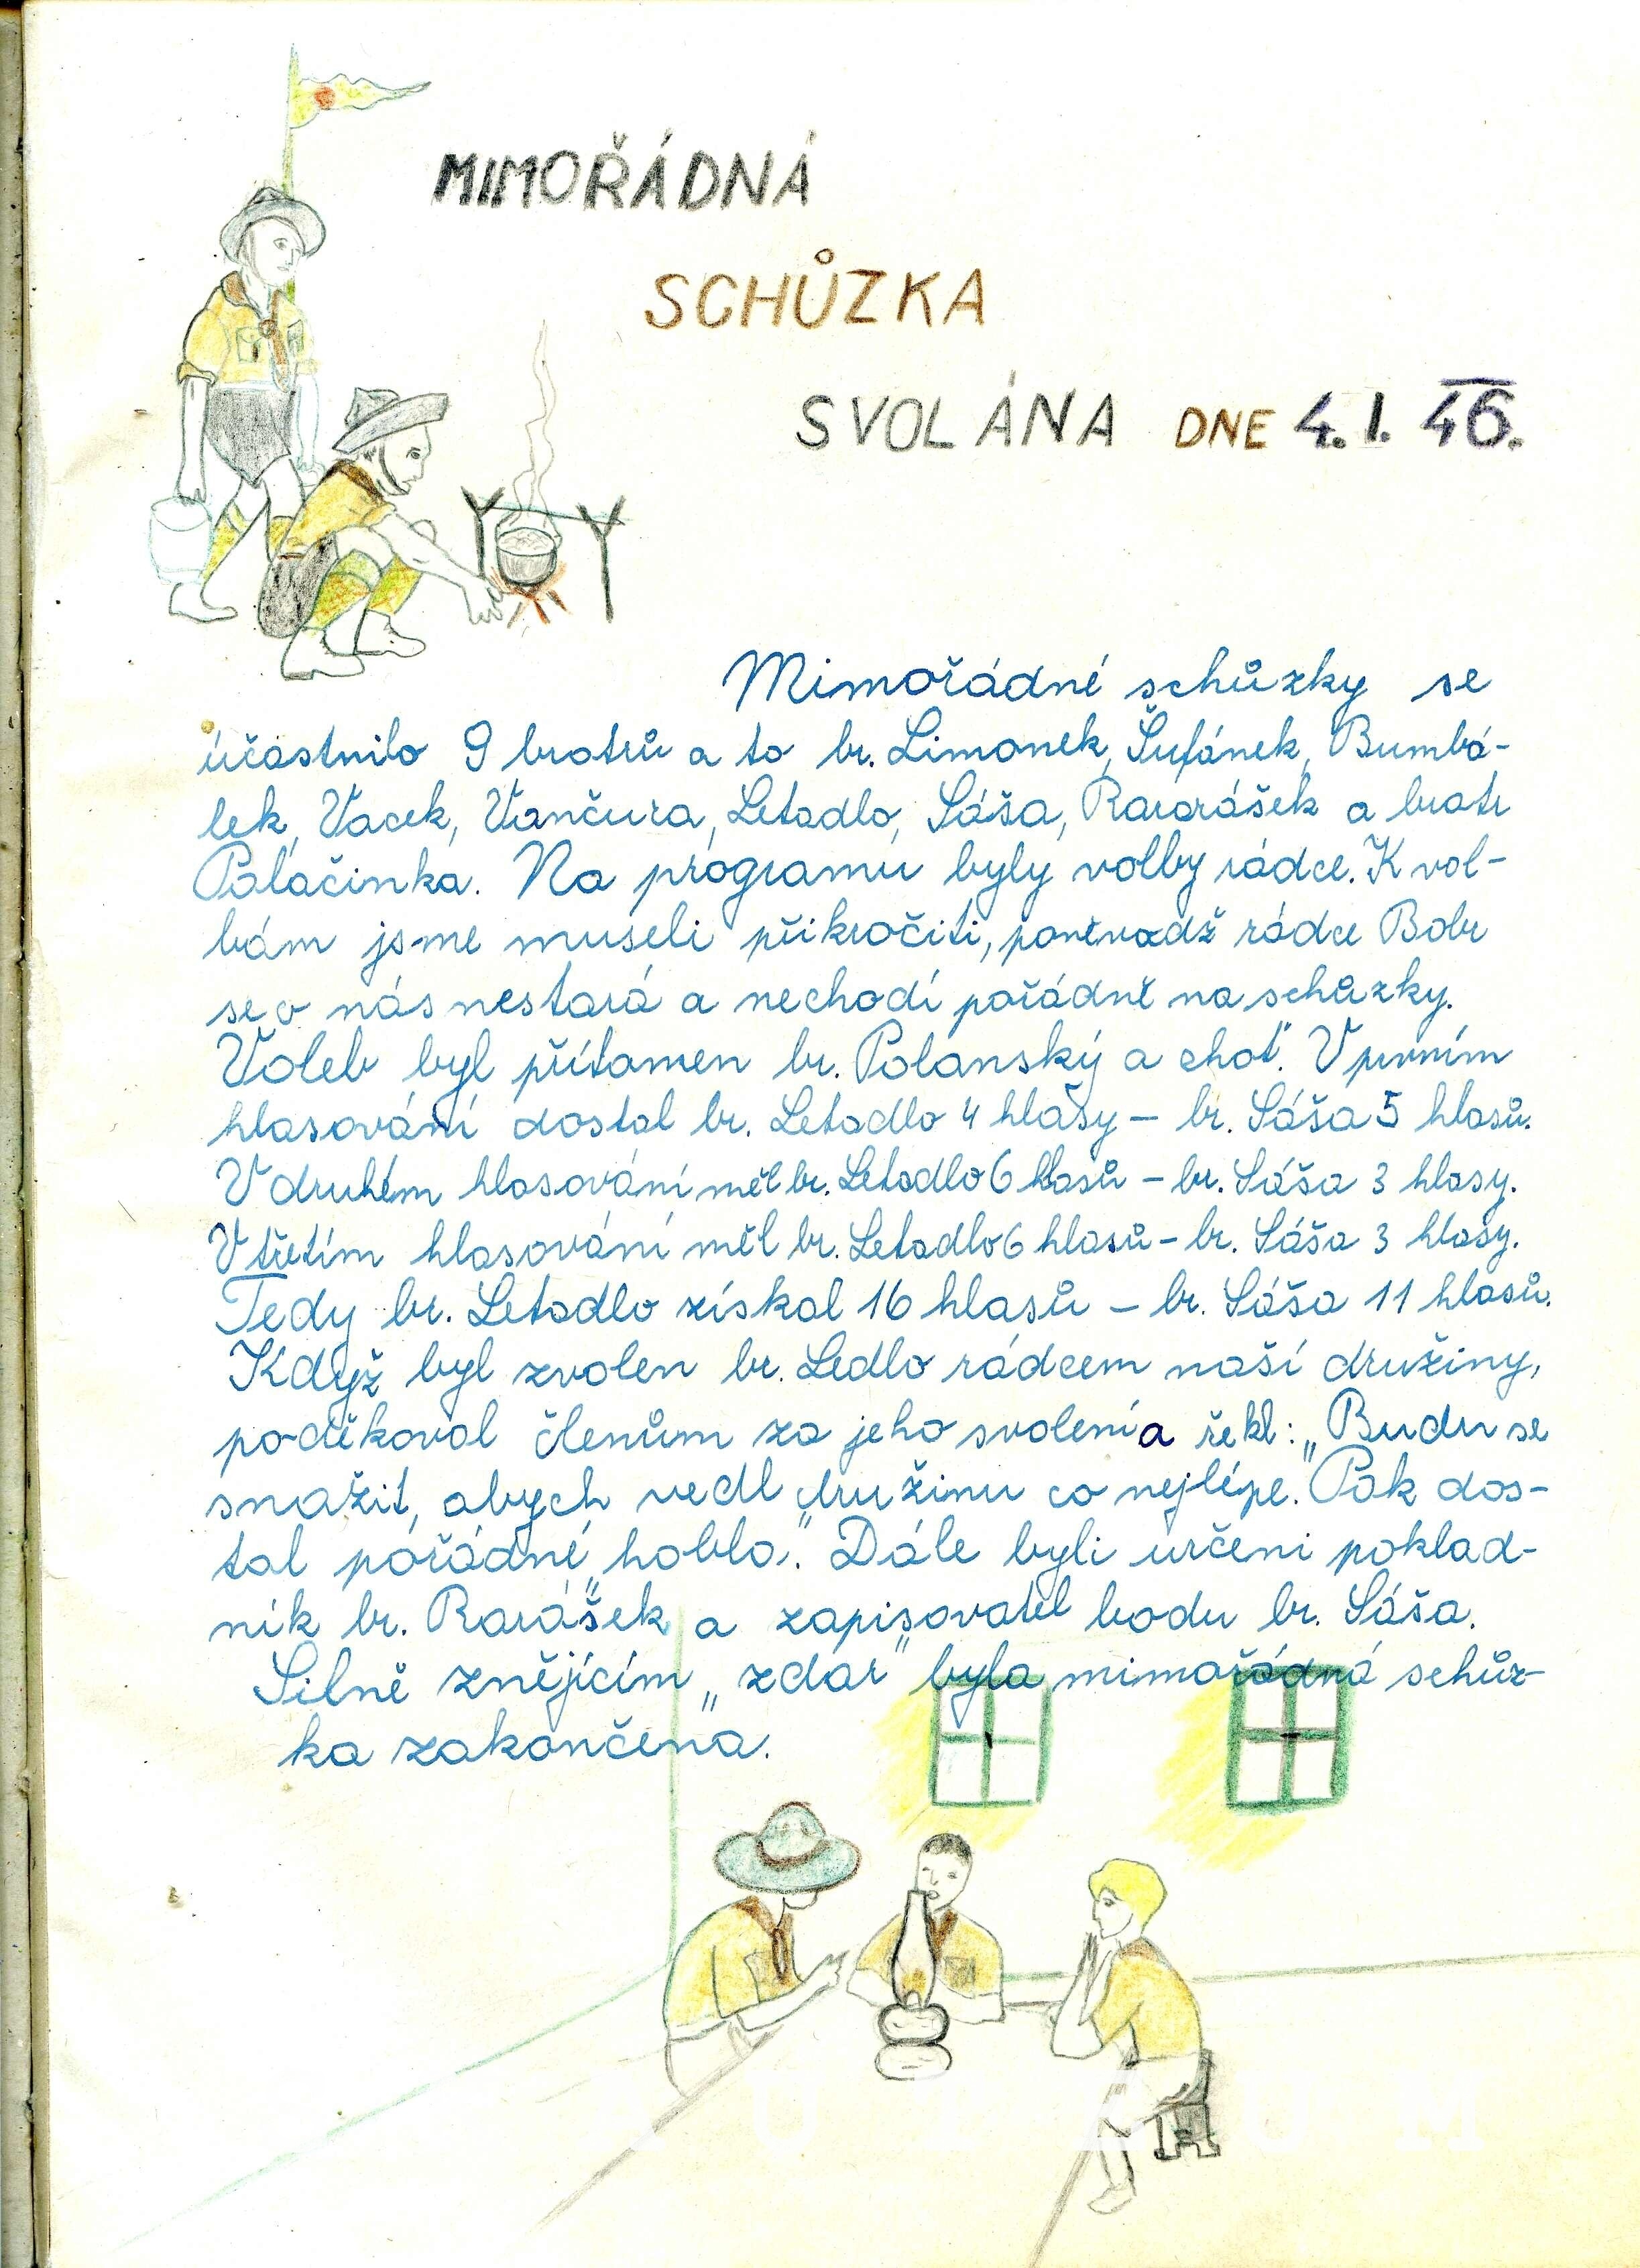 MIMOŘÁDNÁ
SCHŮZKA
SVOLÁNA DNE 4. I. 46.
Mimořádné schůzky se
účastnilo 9 bratrů a to br. Limonek, Šufánek, Bumbá-
lek, Vacek, Vančura, Letadlo, Sáša, Rararášek a bratr
Palačinka. Na programu byly volby rádce. K vol-
bám jsme museli přikročiti, poněvadž rádce Bobr
se o nás nestará a nechodí pořádně na schůzky.
Voleb byl přítomen br. Polanský a choť. V prvním
hlasování dostal br. Letadlo 4 hlasy – br. Sáša 5 hlasů.
V druhém hlasování měl br. Letadlo 6 hlasů – br. Sáša 3 hlasy.
V třetím hlasování měl br. Letadlo 6 hlasů – br. Sáša 3 hlasy.
Tedy br. Letadlo získal 16 hlasů – br. Sáša 11 hlasů.
Když byl zvolen br. Ledlo rádcem naší družiny,
poděkoval členům za jeho svolení a řekl: „Budu se
snažit, abych vedl družinu co nejlépe." Pak dos-
tal pořádné „hoblo". Dále byli určeni poklad-
ník br. Rarášek a zapisovatel bodu br. Sáša.
Silně znějícím „zdar" byla mimořádná schůz-
ka zakončena.